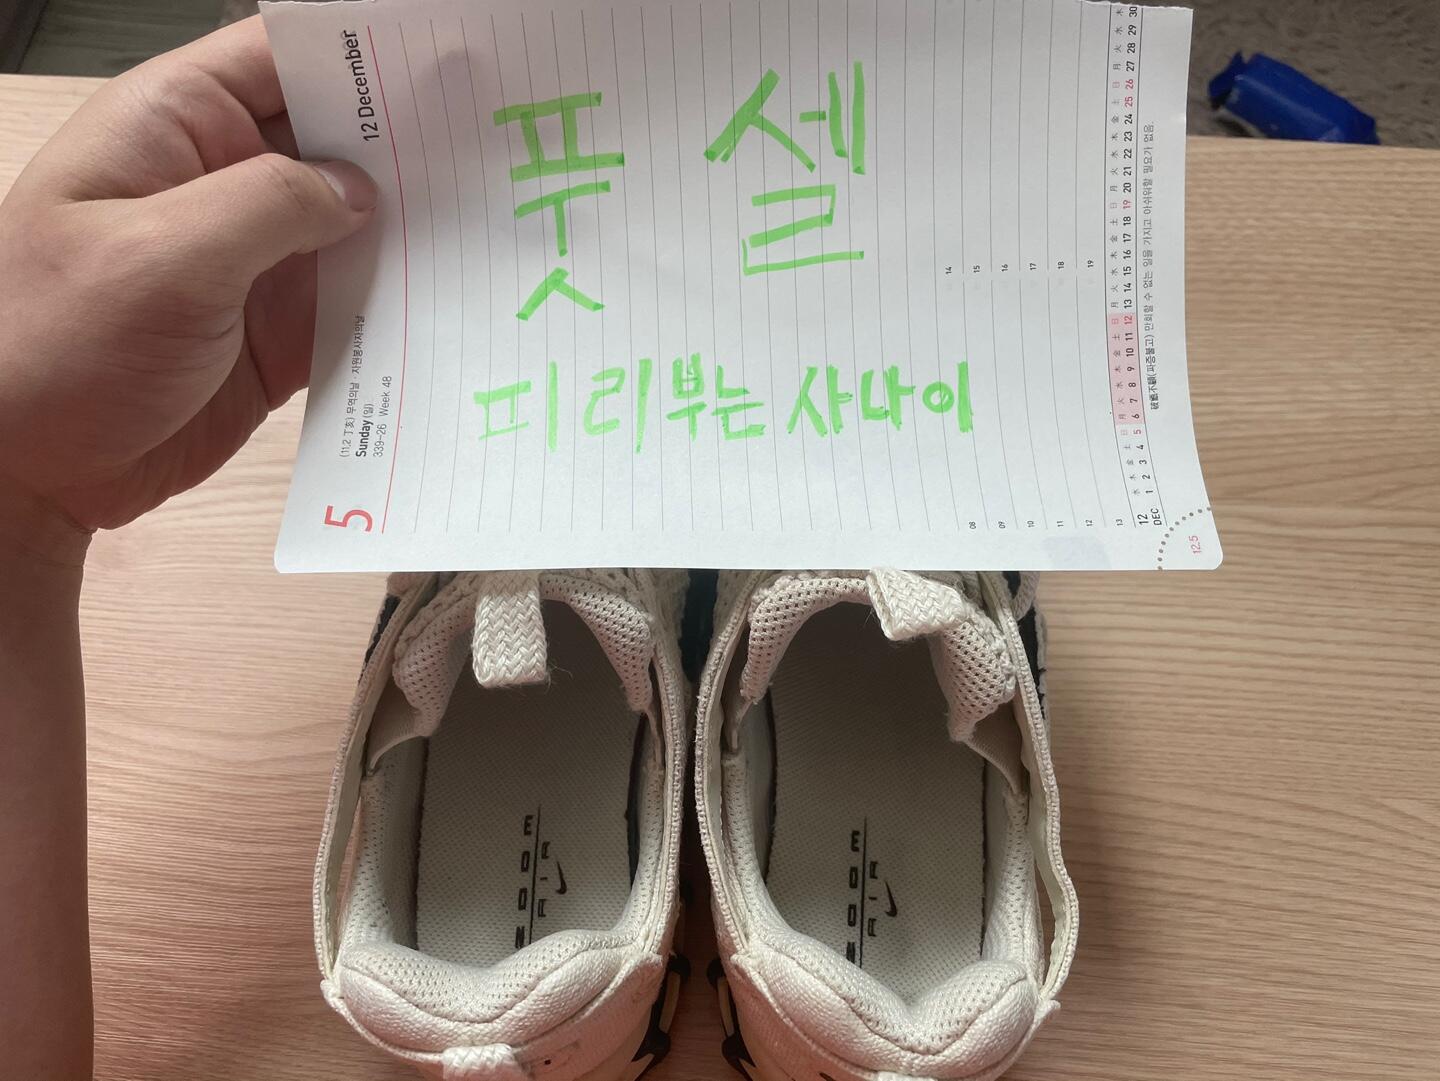 풋 셀
피리부는 사나이
5
(11.2 丁亥) 무역의날 · 자원봉사자의날
Sunday (일)
339-26 Week 48
12 December
08
09
10
11
12
13
14
15
16
17
18
19
水 木 金 土 日 月 火 水 木 金 土 日 月 火 水 木 金 土 日 月 火 水 木 金 土 日 月 火 水 木
12 DEC 1 2 3 4 5 6 7 8 9 10 11 12 13 14 15 16 17 18 19 20 21 22 23 24 25 26 27 28 29 30
破甑不顧(파증불고) 만회할 수 없는 일을 가지고 아쉬워할 필요가 없음.
12.5
ZOOM
AIR
ZOOM
AIR